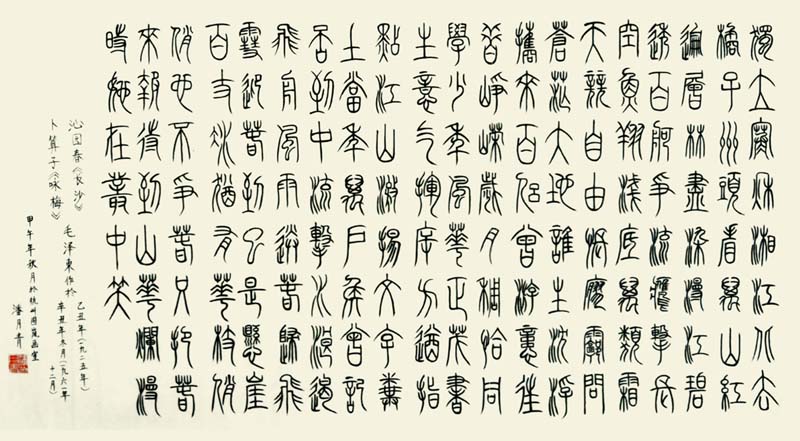 獨立寒秋湘江北去
橘子州頭看萬山紅
遍層林盡染漫江碧
透百舸爭流鷹擊長
空魚翔淺底萬類霜
天競自由悵寥廓問
蒼茫大地誰主沈浮
攜來百侶曾游憶往
昔崢嶸歲月稠恰同
學少年風華正茂書
生意氣揮斥方遒指
點江山激揚文字糞
土當年萬戶侯曾記
否到中流擊水浪遏
飛舟風雨送春歸飛
雪迎春到已是懸崖
百丈冰猶有花枝俏
俏也不爭春只把春
來報待到山花爛漫
時她在叢中笑
沁园春《长沙》
卜算子《咏梅》
毛泽東作於
乙丑年(一九二五年)
辛丑年冬月(一九六一年
十二月)
甲午年秋月於杭州国苑画室
潘月青